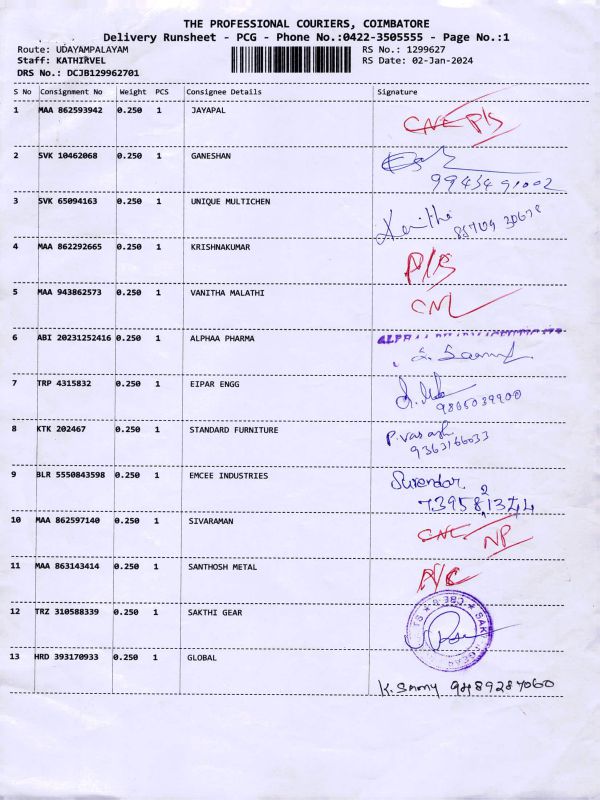 THE PROFESSIONAL COURIERS, COIMBATORE
Delivery Runsheet - PCG - Phone No.:0422-3505555 - Page No.:1
Route: UDAYAMPALAYAM RS No.: 1299627
Staff: KATHIRVEL RS Date: 02-Jan-2024
DRS No.: DCJB129962701
S No Consignment No Weight PCS Consignee Details Signature
1 MAA 862593942 0.250 1 JAYAPAL
2 SVK 10462068 0.250 1 GANESHAN
3 SVK 65094163 0.250 1 UNIQUE MULTICHEN
4 MAA 862292665 0.250 1 KRISHNAKUMAR
5 MAA 943862573 0.250 1 VANITHA MALATHI
6 ABI 20231252416 0.250 1 ALPHAA PHARMA
7 TRP 4315832 0.250 1 EIPAR ENGG
8 KTK 202467 0.250 1 STANDARD FURNITURE
9363166033
9 BLR 5550843598 0.250 1 EMCEE INDUSTRIES Surendar
10 MAA 862597140 0.250 1 SIVARAMAN NP
11 MAA 863143414 0.250 1 SANTHOSH METAL
12 TRZ 310588339 0.250 1 SAKTHI GEAR
13 HRD 393170933 0.250 1 GLOBAL
K. Samy 9489287060